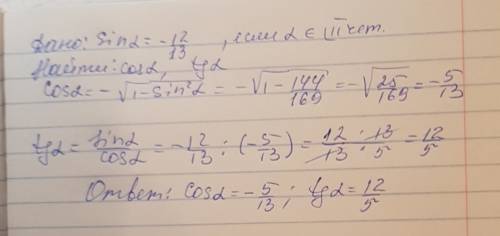 Дано: sinα = -12/13, если α ∈ III чет.
Найти: cosα, tgα
cosα = -√(1-sin²α) = -√(1-144/169) = -√(25/169) = -5/13
tgα = sinα/cosα = -12/13 : (-5/13) = 12/13 · 13/5 = 12/5
Ответ: cosα = -5/13; tgα = 12/5